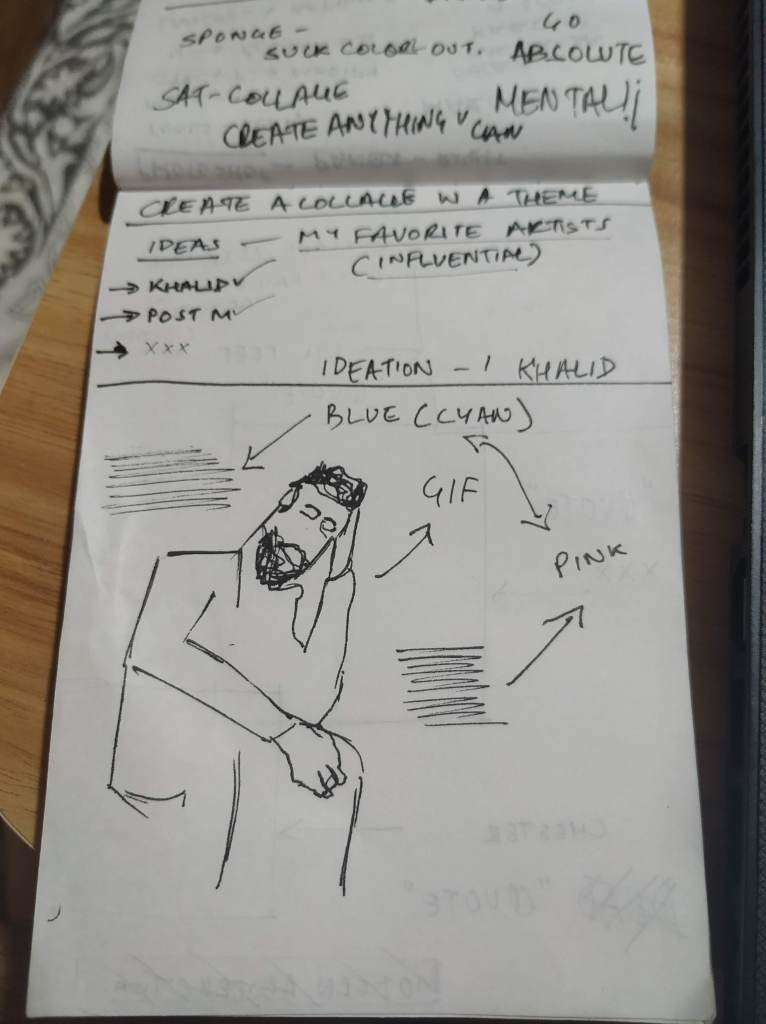 SPONGE -
SUCK COLOR OUT.
GO
ABSOLUTE
MENTAL!!
SAT-COLLAGE
CREATE ANYTHING U CAN
CREATE A COLLAGE W A THEME
IDEAS — MY FAVORITE ARTISTS
(INFLUENTIAL)
→ KHALID ✓
→ POST M ✓
→ XXX
IDEATION - 1 KHALID
BLUE (CYAN)
GIF
PINK
CHESTER
"QUOTE"